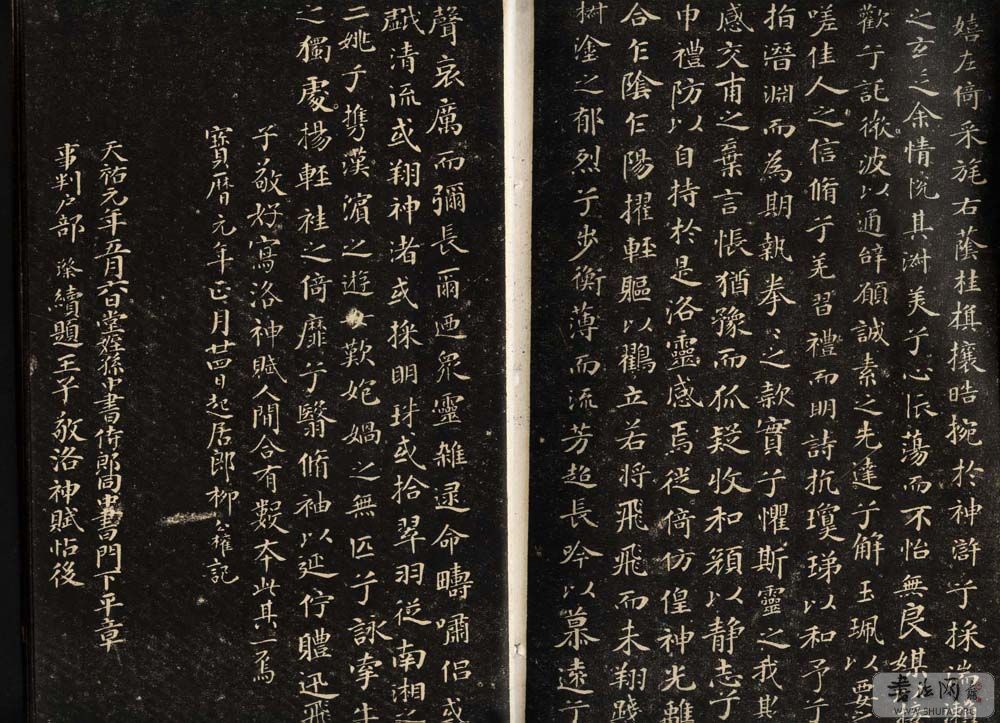 嬉左倚采旄右蔭桂旗攘皓捥於神滸兮採湍
之玄芝余情悅其淑美兮心振蕩而不怡無良媒
歡兮託微波以通辭願誠素之先達兮解玉珮以要之
嗟佳人之信脩兮羌習禮而明詩抗瓊珶以和予兮
指潛淵而為期執拳〻之款實兮懼斯靈之我欺
感交甫之棄言悵猶豫而狐疑收和顏以靜志兮
申禮防以自持於是洛靈感焉徙倚仿偟神光離
合乍陰乍陽擢輕軀以鸖立若將飛飛而未翔踐
椒塗之郁烈兮步衡薄而流芳超長吟以慕遠兮
聲哀厲而彌長爾迺眾靈雜遝命疇嘯侶或
戲清流或翔神渚或採明珠或拾翠羽從南湘之
二姚兮攜漢濱之遊女歎妑媧之無匹兮詠牽牛
之獨處揚輕袿之倚靡兮翳脩袖以延佇體迅飛
子敬好寫洛神賦人間合有數本此其一焉
寶曆元年正月廿四日起居郎柳公權記
天祐元年五月六日堂姪孫中書侍郎同中書門下平章
事判戶部璨續題王子敬洛神賦帖後
书法网
WWW.SHUFA.ORG